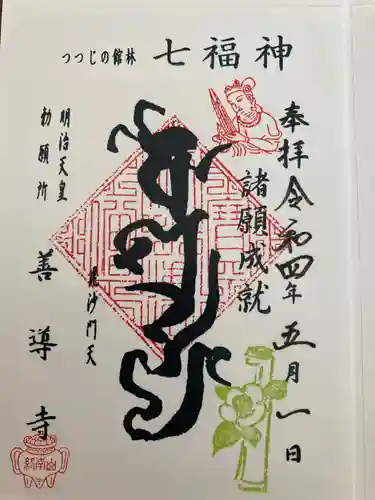 つつじの館林 七福神
奉拝 令和四年五月一日
諸願成就
毘沙門天
明治天皇
勅願所
善導寺